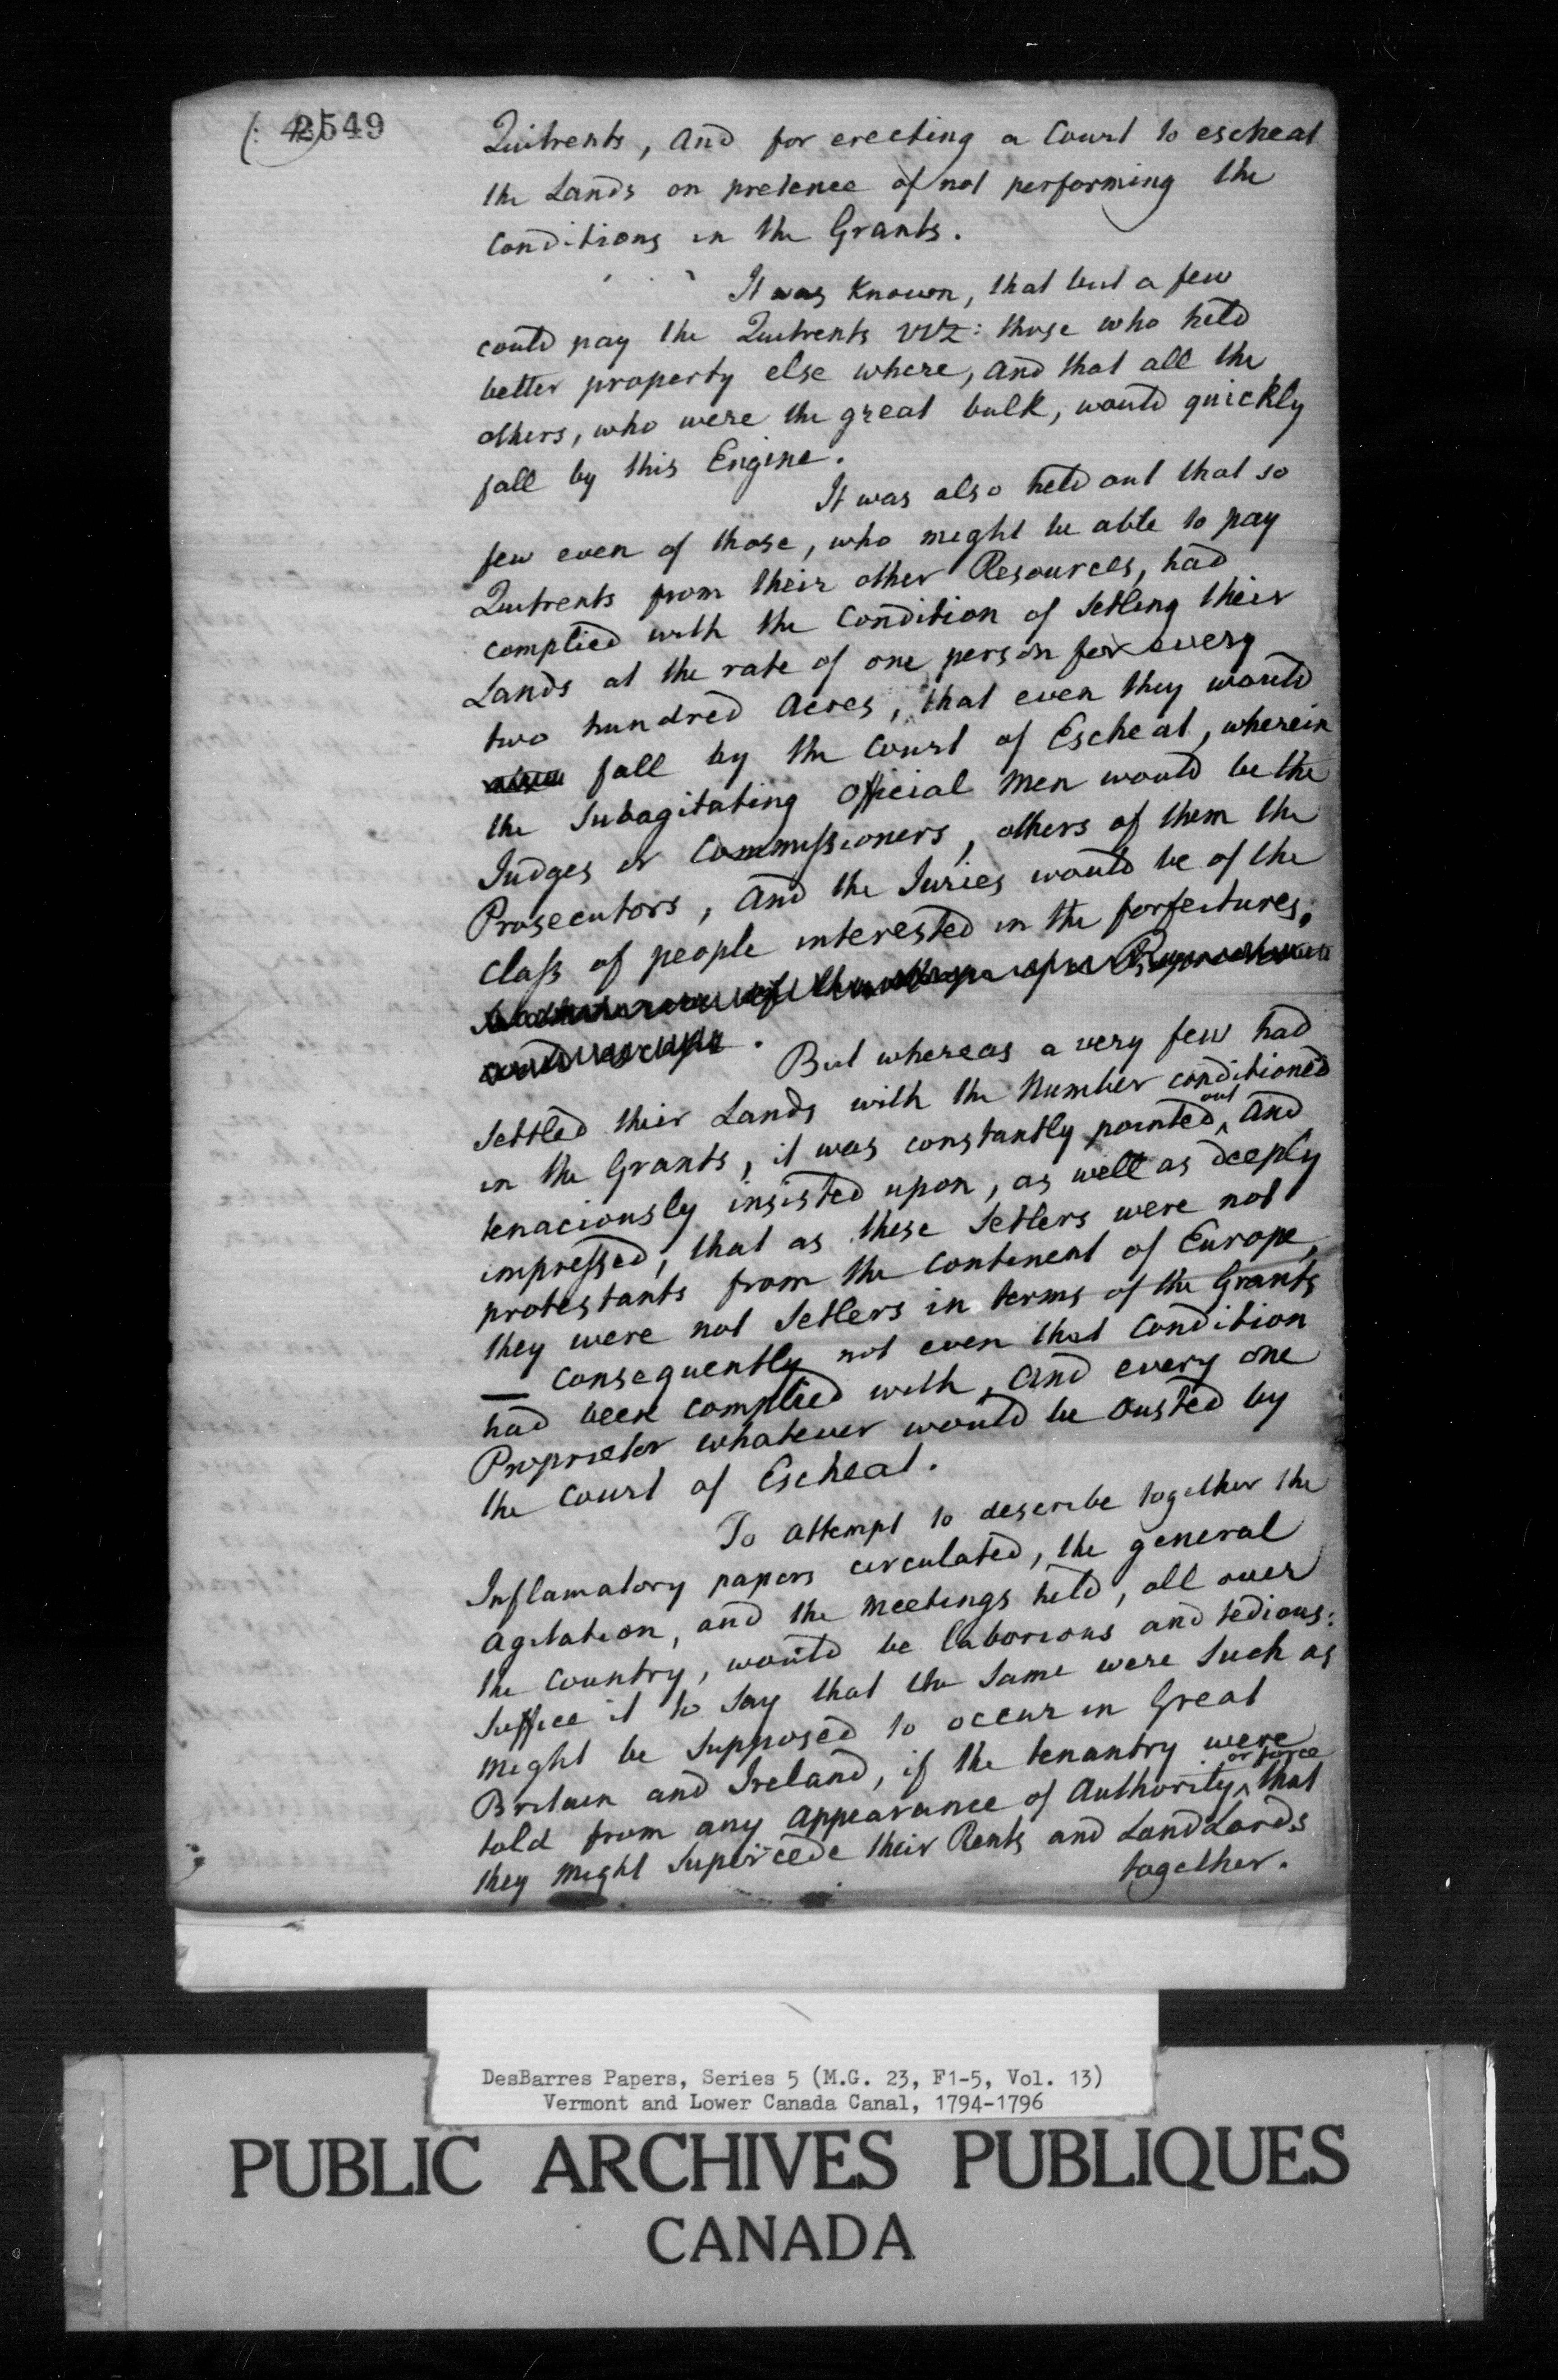 (: 4) 2549
Quitrents, and for erecting a Court to escheat
the Lands on pretence of not performing the
Conditions in the Grants.
It was Known, that but a few
could pay the Quitrents viz: those who held
better property else where, and that all the
others, who were the great bulk, would quickly
fall by this Engine.
It was also held out that so
few even of those, who might be able to pay
Quitrents from their other Resources, had
complied with the Condition of Setling their
Lands at the rate of one person for every
two hundred Acres, that even they would
fall by the Court of Escheat, wherein
the Subagitating Official Men would be the
Judges or Commissioners, others of them the
Prosecutors, and the Juries would be of the
Class of people interested in the forfeitures.
But whereas a very few had
Settled their Lands with the Number conditioned
in the Grants, it was constantly pointed out and
tenaciously insisted upon, as well as deeply
impressed, that as these Setlers were not
protestants from the Continent of Europe,
they were not Setlers in terms of the Grants
— Consequently not even that Condition
had been complied with, and every one
Proprietor whatever would be Ousted by
the Court of Escheat.
To attempt to describe together the
Inflamatory papers circulated, the general
Agitation, and the Meetings held, all over
the Country, would be laborious and tedious:
Suffice it to Say that the Same were Such as
might be Supposed to occur in Great
Britain and Ireland, if the tenantry were
told from any Appearance of Authority or force that
they might Supercede their Rents and LandLords
together.
DesBarres Papers, Series 5 (M.G. 23, F1-5, Vol. 13)
Vermont and Lower Canada Canal, 1794-1796
PUBLIC ARCHIVES PUBLIQUES
CANADA